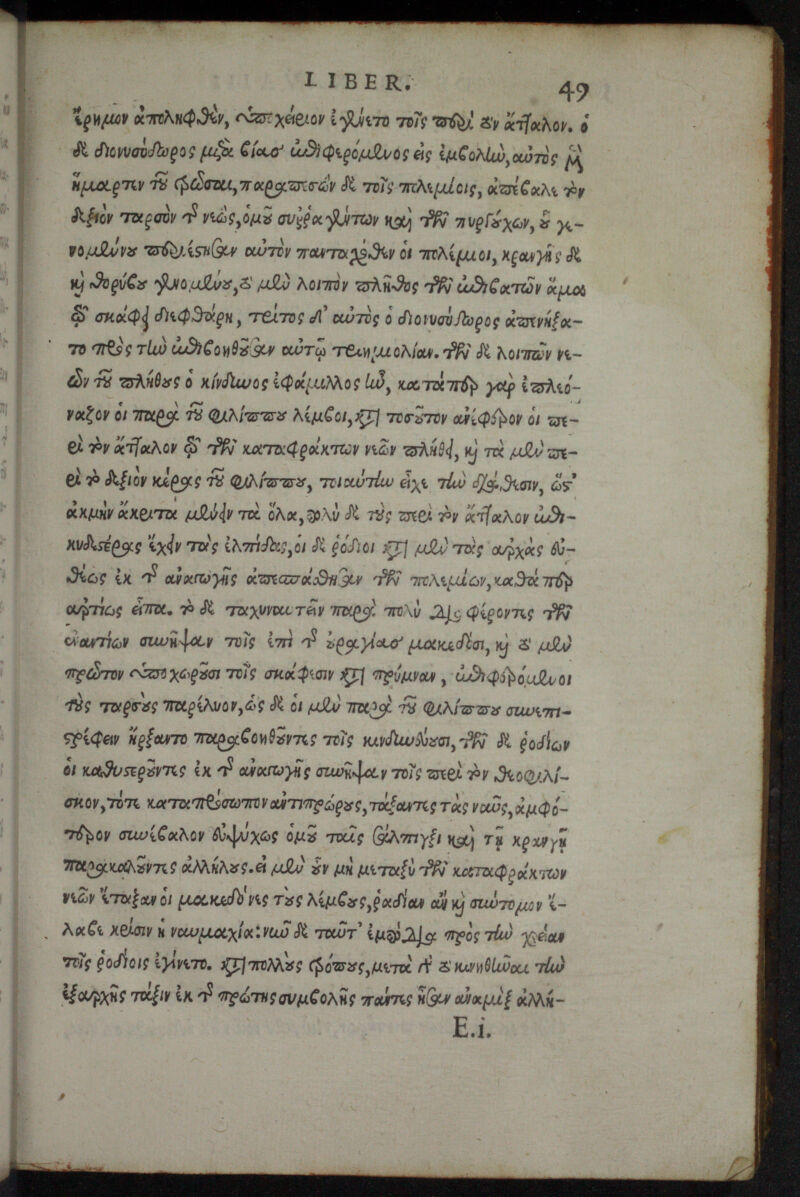 LIBER. 49
ἔρημον ἀποληφθὲν, ὑποχείριον ἐγένετο τοῖς περὶ τὸν ἄτταλον. ὁ
δὲ διονυσόδωρος μετὰ βίας ἐπιφερόμενος εἰς ἐμβολὴν, αὐτὸς μὲν
ἥμαρτεν τοῦ τρῶσαι, παραπεσὼν δὲ τοῖς πολεμίοις, ἀπέβαλε τὸν
δεξιὸν ταρσὸν τῆς νεὼς, ὁμοῦ συῤῥαγέντων καὶ τῶν πυργούχων, οὗ γε-
νομένου περιέστησαν αὐτὸν πανταχόθεν οἱ πολέμιοι, κραυγῆς δὲ
καὶ θορύβου γενομένου, τὸ μὲν λοιπὸν πλῆθος τῶν ἐπιβατῶν ἅμα
τῷ σκάφει διεφθάρη, τρίτος δ' αὐτὸς ὁ διονυσόδωρος ἀπενήξα-
το πρὸς τὴν ἐπιβοηθοῦσαν αὐτῷ τριημιολίαν. τῶν δὲ λοιπῶν νε-
ῶν τοῦ πλήθους ὁ κίνδυνος ἐφάμιλλος ἦν, καθάπερ γὰρ ἐπλεό-
ναζον οἱ παρὰ τοῦ φιλίππου λέμβοι, καὶ τοσοῦτον ἀνέφερον οἱ πε-
ρὶ τὸν ἄτταλον τῷ τῶν καταφράκτων νεῶν πλήθει, καὶ τὰ μὲν πε-
ρὶ τὸ δεξιὸν κέρας τοῦ φιλίππου, τοιαύτην εἶχε τὴν διάθεσιν, ὥστ'
ἀκμὴν ἄκριτα μένειν τὰ ὅλα, πολὺ δὲ τοὺς περὶ τὸν ἄτταλον ἐπι-
κυδεστέρας ἔχειν τὰς ἐλπίδας, οἱ δὲ ῥόδιοι καὶ μὲν τὰς ἀρχὰς εὐ-
θέως ἐκ τῆς ἀναγωγῆς ἀπεσπάσθησαν τῶν πολεμίων, καθάπερ
ἀρτίως εἶπα. τὸ δὲ ταχυναυτεῖν παρὰ πολὺ διαφέροντες τῶν
ἐναντίων συνῆψαν τοῖς ἐπὶ τῆς οὐραγίας μακεδόσι, καὶ τὸ μὲν
πρῶτον ὑποχωροῦσι τοῖς σκάφεσιν καὶ πρύμναν, ἐπιφερόμενοι
τοὺς ταρσοὺς παρέλυον, ὡς δὲ οἱ μὲν παρὰ τοῦ φιλίππου συνεπι-
στρέφειν ἤρξαντο παραβοηθοῦντες τοῖς κινδυνεύουσι, τῶν δὲ ῥοδίων
οἱ καθυστεροῦντες ἐκ τῆς ἀναγωγῆς συνῆψαν τοῖς περὶ τὸν θεοφιλί-
σκον, τότε καταπρόσωπον ἀντιπρώρους, τάξαντες τὰς ναῦς, ἀμφό-
τερον συνέβαλον εὐψύχως ὁμοῦ ταῖς σάλπιγξι καὶ τῇ κραυγῇ
παρακαλοῦντες ἀλλήλους. εἰ μὲν οὖν μὴ μεταξὺ τῶν καταφράκτων
νεῶν ἔταξαν οἱ μακεδόνες τοὺς λέμβους, ῥαδίαν ἂν καὶ σύντομον ἔ-
λαβε κρίσιν ἡ ναυμαχία: νῦν δὲ ταῦτ' ἐμπόδια πρὸς τὴν χρείαν
τοῖς ῥοδίοις ἐγίνετο. καὶ πολλοὺς τρόπους, μετὰ γὰρ τὸ κινηθῆναι τὴν
ἐξαρχῆς τάξιν ἐκ τῆς πρώτης συμβολῆς πάντες ἦσαν ἀναμὶξ ἀλλή-
E.i.